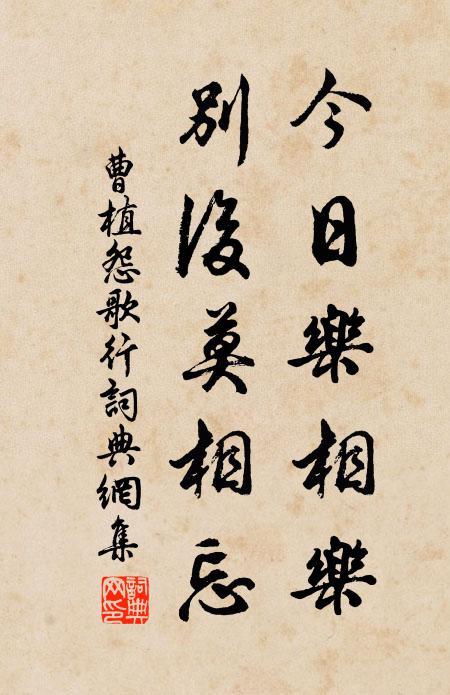 今日樂相樂
別後莫相忘
曹植怨歌行詞典網集
詞典